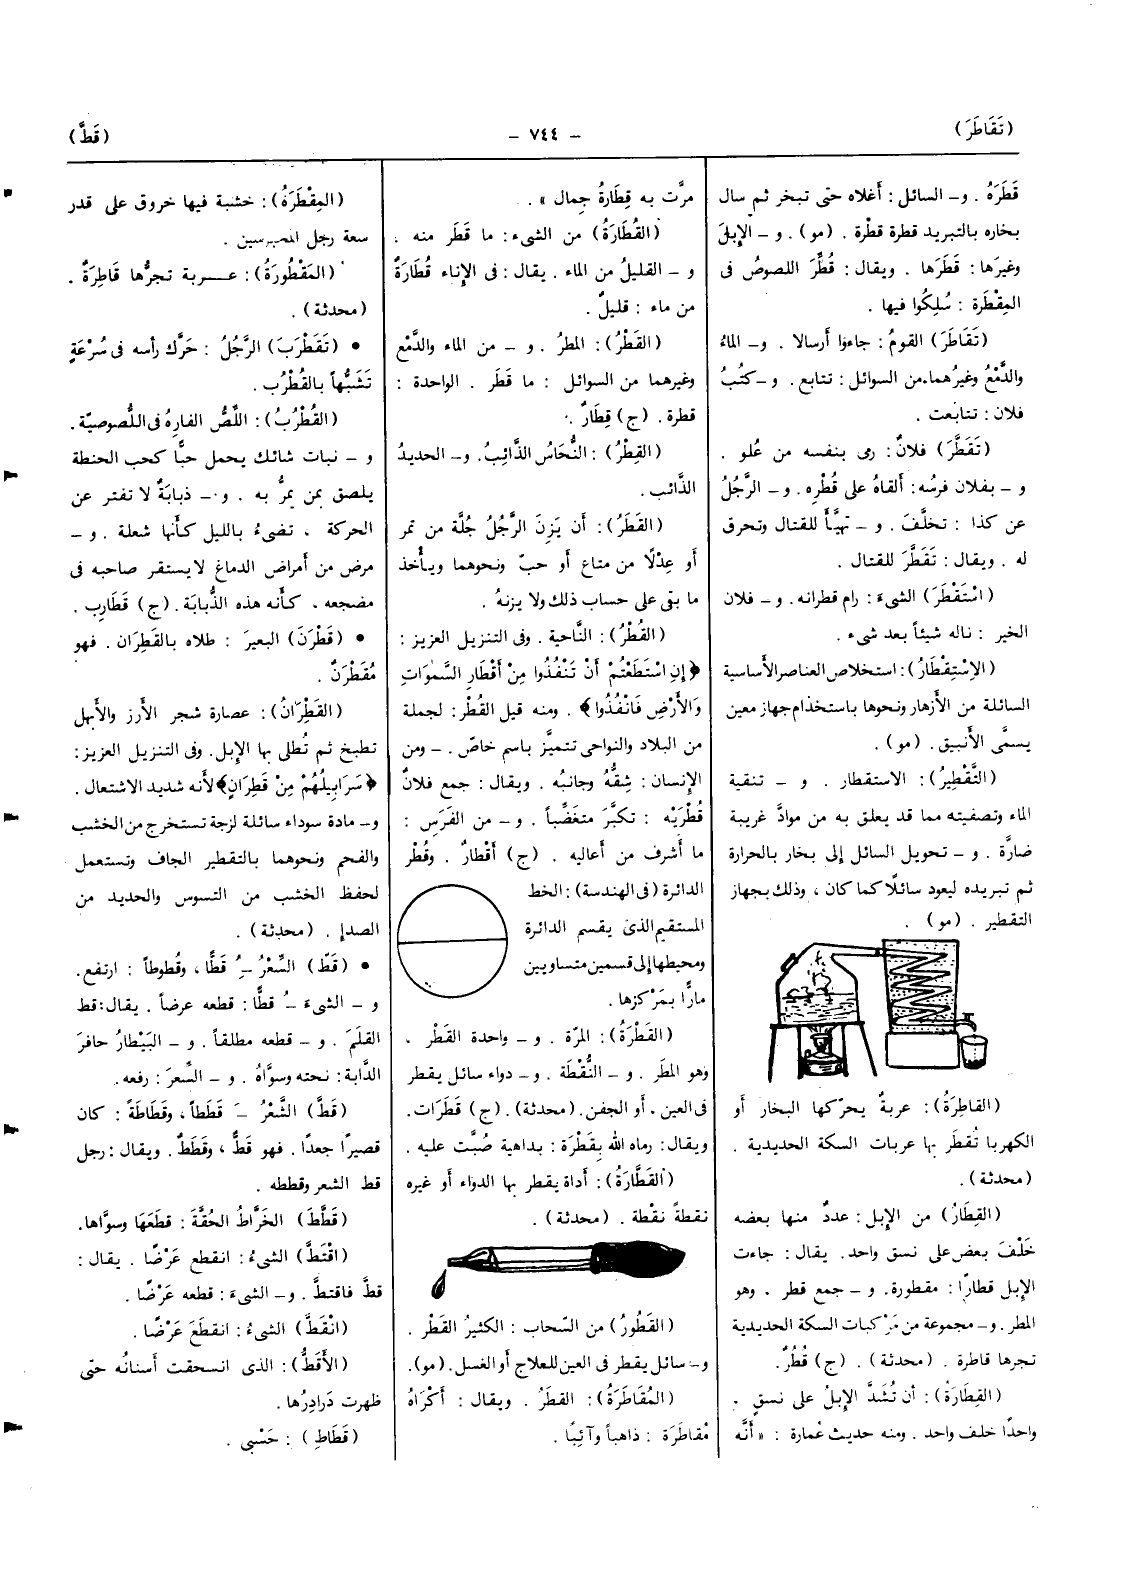 (تَقَاطَرَ)
- ٧٤٤ -
(قَطَّ)
قَطَرَهُ . و- السائل : أَغلاه حتى تبخر ثم سال
بخاره بالتبريد قطرة قطْرة . (مو) . و - الإِبلَ
وغيرَها : قَطَرَها . ويقال : قُطِّرَ اللصوصُ فى
المِقْطَرة : سُلِكُوا فيها .
(تَقَاطَرَ) القومُ : جاءوا أرسالا . و- الماءُ
والدَّمْعُ وغيرُهما من السوائل : تتابع . و- كتُبُ
فلان : تتابعت .
(تَقَطَّرَ) فلانٌ : رمى بنفسه من عُلو .
و - بفلان فرسُه : ألقاهُ على قُطْرِه . و- الرَّجُلُ
عن كذا : تخلَّفَ . و - تهيَّأ للقتال وتحرق
له . ويقال : تَقَطَّرَ للقتال .
(اسْتَقْطَرَ) الشىءَ : رام قطرانه . و- فلان
الخير : ناله شيئاً بعد شىء .
(الاِسْتِقْطَارُ) : استخلاص العناصر الأساسية
السائلة من الأزهار ونحوها باستخدام جهاز معين
يسمَّى الأنبيق . (مو) .
(التَّقْطِيرُ) : الاستقطار . و - تنقية
الماء وتصفيته مما قد يعلق به من موادَّ غريبة
ضارَّة . و - تحويل السائل إلى بخار بالحرارة
ثم تبريده ليعود سائلًا كما كان ، وذلك بجهاز
التقطير . (مو) .
(القاطِرَةُ) : عربةٌ يحرّكها البخار أو
الكهربا تُقطَر بها عربات السكة الحديدية .
(محدثة) .
(القِطَارُ) من الإبل : عددٌ منها بعضه
خَلْفَ بعض على نسق واحد. يقال : جاءت
الإبل قطارًا : مقطورة. و - جمع قطر . وهو
المطر . و- مجموعة من مَرْكبات السكة الحديدية
تجرها قاطرة . (محدثة) . (ج) قُطُرٌ .
(القِطَارَةُ) : أن تُشَدَّ الإبلُ على نسقٍ .
واحدًا خلف واحد . ومنه حديث عُمارة : « أنَّه
مرَّت به قِطارةُ جِمال » .
(القُطَارَةُ) من الشىء : ما قَطَر منه .
و - القليلُ من الماء . يقال : فى الإناء قُطَارَةٌ
من ماء : قليلٌ .
(القَطْرُ) : المطرُ . و - من الماء والدَّمْعِ
وغيرهما من السوائل : ما قَطَر . الواحدة :
قطرة . (ج) قِطارٌ .
(القِطْرُ) : النُّحَاسُ الذَّائِبُ. و- الحديدُ
الذَّائب .
(القَطَرُ) : أن يَزِنَ الرَّجُلُ جُلَّة من تمر
أو عِدْلًا من متاع أو حبّ ونحوهما ويأخذ
ما بقى على حساب ذلك ولا يزنهُ .
(القُطْرُ) : النَّاحية . وفى التنزيل العزيز :
﴿إِنِ اسْتَطَعْتُمْ أَنْ تَنْفُذُوا مِنْ أَقْطَارِ السَّمٰوَاتِ
وَالأَرْضِ فَانْفُذُوا﴾ . ومنه قيل القُطْر : لجملة
من البلاد والنواحى تتميَّز باسم خاصّ . - ومن
الإنسان : شِقُّهُ وجانبُه . ويقال : جمع فلانٌ
قُطْرَيْه : تكبَّرَ متغَضِّباً . و- من الفَرَس :
ما أشرف من أعاليه . (ج) أقْطارٌ . وقُطْر
الدائرة (فى الهندسة) : الخط
المستقيم الذى يقسم الدائرة
ومحيطها إلى قسمين متساويين
مارًّا بمَرْكزها .
(القَطْرَةُ) : المرّة . و - واحدة القَطْر ،
وهو المطر . و - النُّقْطَة . و- دواء سائل يقطر
فى العين ، أو الجفن . (محدثة) . (ج) قَطَرَات.
ويقال : رماه الله بِقَطْرَة : بداهية صُبَّت عليه .
(القَطَّارَةُ) : أداة يقطر بها الدواء أو غيره
نقطةً نقْطة . (محدثة) .
(القَطُورُ) من السّحاب : الكثيرُ القَطْر .
و- سائل يقطر فى العين للعلاج أو الغسل . (مو).
(المُقَاطَرَةُ) : القطَرُ . ويقال : أكْرَاهُ
مُقاطَرَة : ذاهباً وآئِبًا .
(المِقْطَرَةُ) : خشبة فيها خروق على قدر
سعة رجل المحبوسين .
(المَقْطُورَةُ) : عربة تجرُّها قَاطِرَةٌ .
(محدثة) .
• (تَقَطْرَبَ) الرَّجُلُ : حَرَّك رأسه فى سُرْعَةٍ
تَشَبُّهاً بالقُطْرُب .
(القُطْرُبُ) : اللِّصُّ الفارِهُ فى اللُّصوصيّة .
و - نبات شائك يحمل حبًّا كحب الحنطة
يلصق بمن يمرُّ به . و- ذبابَةٌ لا تفتر عن
الحركة ، تضىءُ بالليل كأنها شعلة . و -
مرض من أمراض الدماغ لا يستقر صاحبه فى
مضجعه ، كأنه هذه الذُّبابَة . (ج) قَطَارِب .
• (قَطْرَنَ) البعيرَ : طلاه بالقَطِرَان . فهو
مُقَطْرَنٌ .
(القَطِرَانُ) : عصارة شجر الأرز والأبهل
تطبخ ثم تُطلى بها الإبل. وفى التنزيل العزيز :
﴿سَرَابِيلُهُمْ مِنْ قَطِرَانٍ﴾ لأنه شديد الاشتعال .
و- مادة سوداء سائلة لزجة تستخرج من الخشب
والفحم ونحوهما بالتقطير الجاف وتستعمل
لحفظ الخشب من التسوس والحديد من
الصدإ . (محدثة) .
• (قَطَّ) السِّعْرُ -ُ قَطًّا ، وقُطوطاً : ارتفع .
و - الشىءَ -ُ قطًّا : قطعه عرضاً . يقال : قط
القلَمَ . و - قطعه مطلقاً . و - البَيْطارُ حافرَ
الدَّابة : نحته وسوَّاهُ . و - السِّعرَ : رفعه .
(قَطَّ) الشَّعْرُ -َ قَطَطاً ، وقَطَاطَةً : كان
قصيراً جعداً . فهو قَطٌّ ، وقَطَطٌ . ويقال : رجل
قط الشعر وقططه .
(قَطَّطَ) الخَرَّاطُ الحُقَّةَ : قطعَهَا وسوَّاها .
(اقْتَطَّ) الشىءُ : انقطع عَرْضًا . يقال :
قطَّ فاقتطَّ . و- الشىءَ : قطعه عَرْضًا .
(انْقَطَّ) الشىءُ : انقطَعَ عَرْضًا .
(الأَقَطُّ) : الذى انسحقت أسنانُه حتى
ظهرت دَرادِرُها .
(قَطَاطِ) : حَسْبى .